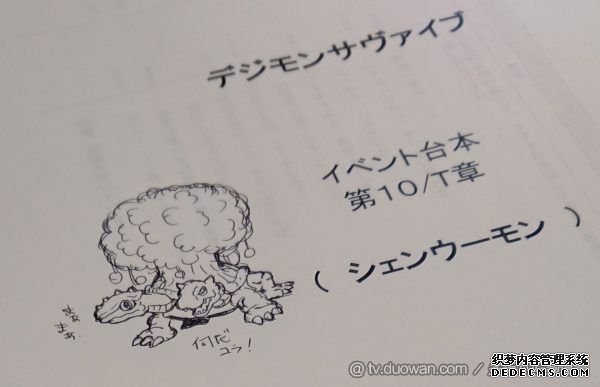 デジモンサヴァイブ
イベント台本
第10/T章
( シェンウーモン )
まぁ
まぁ.
何だ
コラ!
@ tv.duowan.com /
织梦内容管理系统
DEDECMS.COM